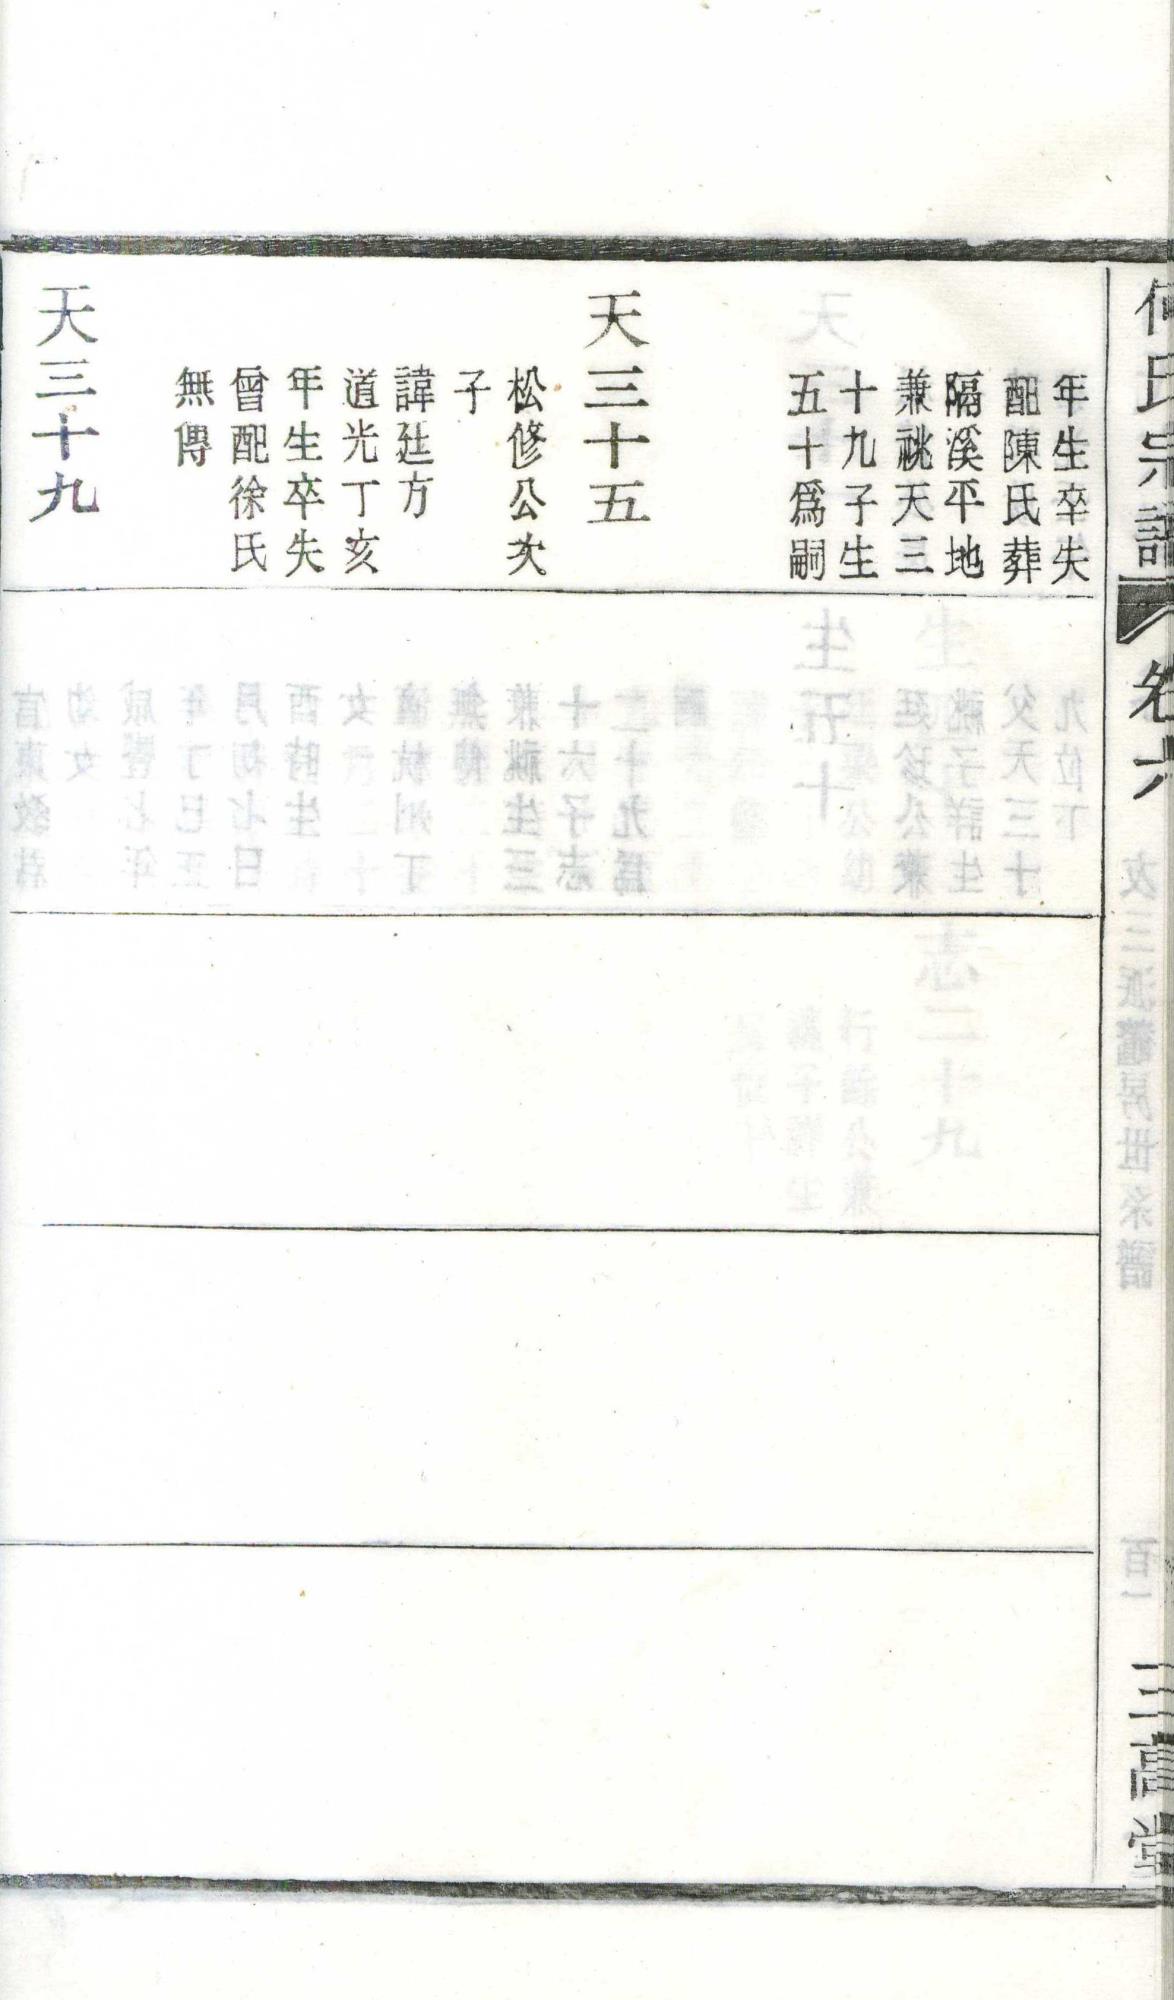 何氏宗譜 卷六 三高堂
年生卒失
配陳氏葬
隔溪平地
兼祧天三
十九子生
五十爲嗣
天三十五
松修公次
子
諱廷方
道光丁亥
年生卒失
曾配徐氏
無傳
天三十九